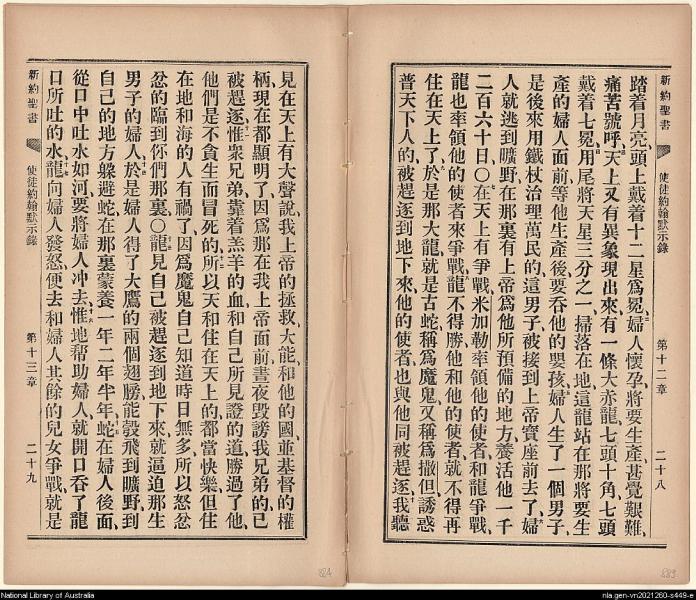 新約聖書 使徒約翰默示錄 第十二章 二十八
踏着月亮、頭上戴着十二星爲冕、婦人懷孕、將要生產、甚覺艱難、
痛苦號呼、天上又有異象現出來、有一條大赤龍、七頭十角、七頭
戴着七冕、用尾將天星三分之一、掃落在地、這龍站在那將要生
產的婦人面前、等他生產後、要吞他的嬰孩、婦人生了一個男子、
是後來用鐵杖治理萬民的、這男子、被接到上帝寶座前去了、婦
人就逃到曠野、在那裏有上帝爲他所預備的地方、養活他一千
二百六十日、〇在天上有爭戰、米加勒率領他的使者和龍爭戰、
龍也率領他的使者來爭戰、龍不得勝、他和他的使者就不得再
住在天上了、於是那大龍、就是古蛇、稱爲魔鬼、又稱爲撒但、誘惑
普天下人的、被趕逐到地下來、他的使者、也與他同被趕逐、我聽
見在天上有大聲說、我上帝的拯救、大能、和他的國、並基督的權
柄、現在都顯明了、因爲那在我上帝面前、晝夜毀謗我兄弟的、已
被趕逐、惟衆兄弟、靠着羔羊的血、和自己所見證的道、勝過了他、
他們是不貪生而冒死的、所以天和住在天上的、都當快樂、但住
在地和海的人有禍了、因爲魔鬼自己知道時日無多、所以忿忿
忿的臨到你們那裏、〇龍見自己被趕逐到地下來、就逼迫那生
男子的婦人、於是婦人得了大鷹的兩個翅膀、能彀飛到曠野、到
自己的地方、躲避蛇、在那裏蒙養一年二年半年、蛇在婦人後面、
從口中吐水如河、要將婦人冲去、惟地帮助婦人、就開口吞了龍
口所吐的水、龍向婦人發怒、便去和婦人其餘的兒女爭戰、就是
新約聖書 使徒約翰默示錄 第十三章 二十九
National Library of Australia
nla.gen-vn2021260-s449-e